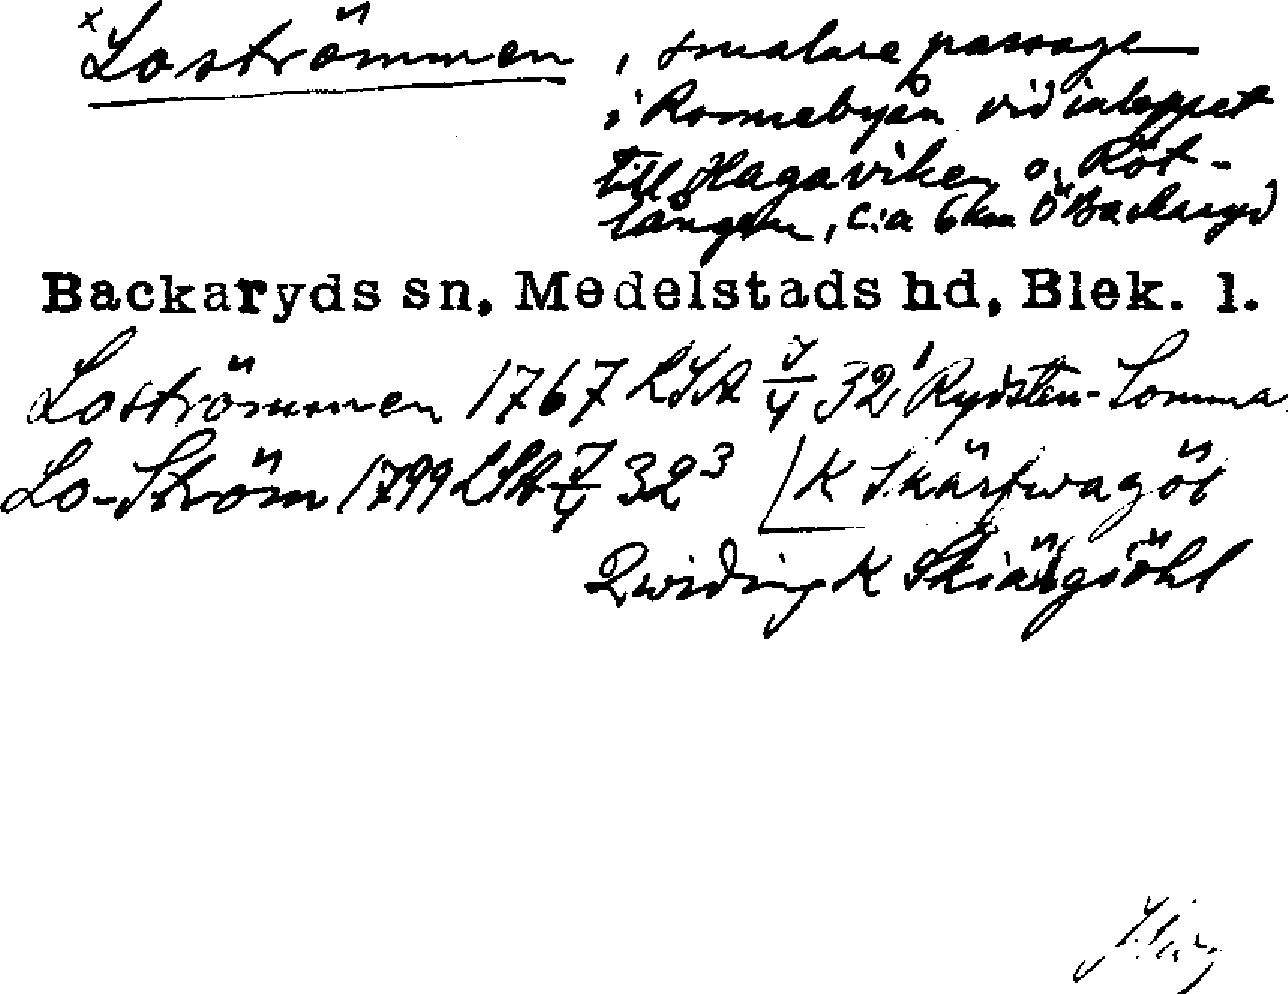 x Loströmmen, smalare passage
i Ronnebyån vid inloppet
till Hagaviken o. Röt-
lången, c:a 6 km Ö Backaryd
Backaryds sn, Medelstads hd, Blek. l.
Loströmmen 1767 LSA 7/4 32¹ Rydsten-Lomma
Lo-Ström 1799 LSA 7/4 32³ K Skärfwagöl
Qwiding K